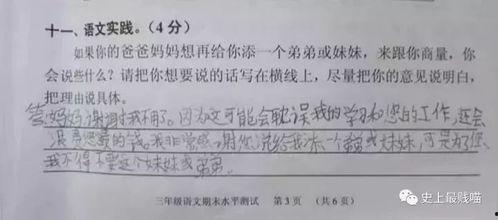 十一、语文实践。(4分)
如果你的爸爸妈妈想再给你添一个弟弟或妹妹，来跟你商量，你
会说些什么？请把你想要说的话写在横线上，尽量把你的意见说明白，
把理由说具体。
爸妈妈谢谢，我不用了。因为这可能会耽误我的学习和您的工作，还会
浪费您最的钱。我非常感谢你说给我添一个弟弟或妹妹，可是为了您、
我不得不要这个妹妹或弟弟。
三年级语文期末水平测试 第3页 (共6页)
史上最贱喵